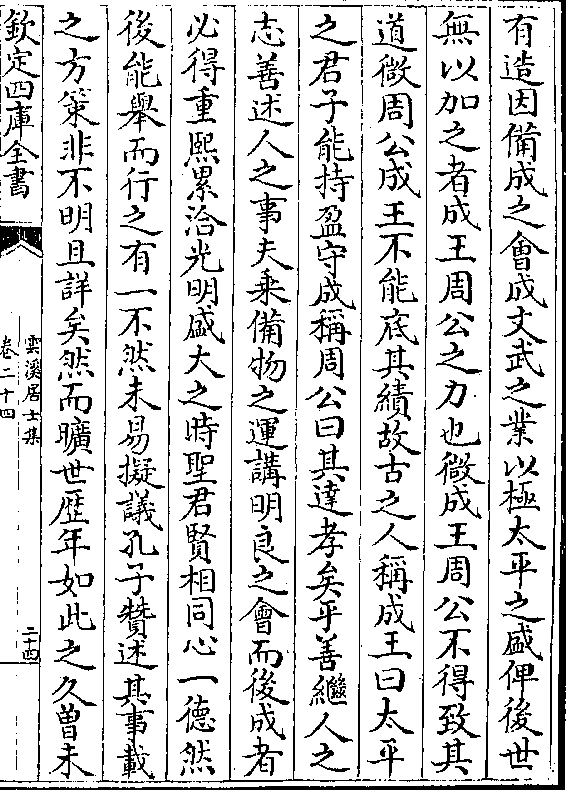 有造因備成之會成文武之業以極太平之盛俾後世
無以加之者成王周公之力也微成王周公不得致其
道微周公成王不能底其績故古之人稱成王曰太平
之君子能持盈守成稱周公曰其達孝矣乎善繼人之
志善述人之事夫乗備物之運講明良之會而後成者
必得重熙累洽光明盛大之時聖君賢相同心一德然
後能舉而行之有一不然未易擬議孔子贊述其事載
之方策非不明且詳矣然而曠世歴年如此之久曽未
欽定四庫全書
雲溪居士集
卷二十四
二十四